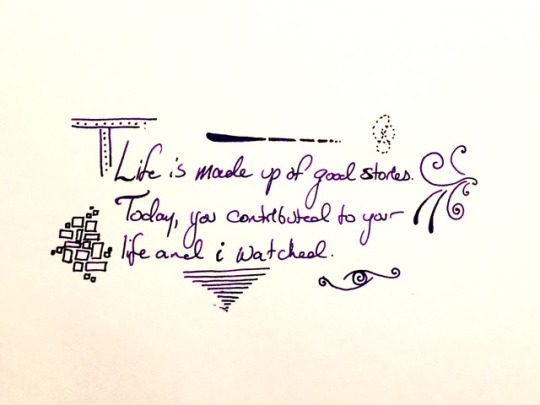 Life is made up of good stories.
Today, you contributed to your
life and i watched.